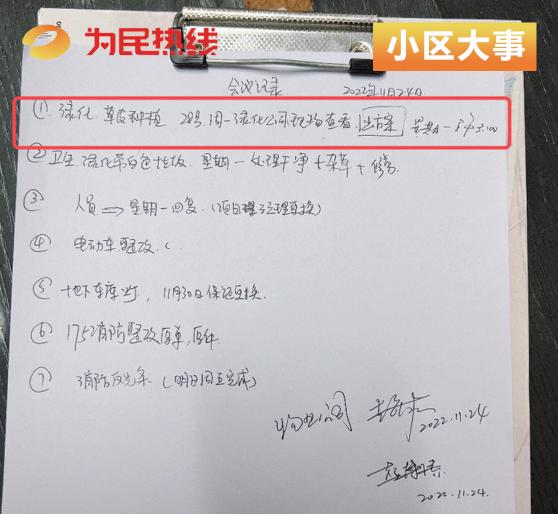 为民热线
小区大事
会议记录 2022年11月24日
① 绿化 草皮种植 28号周一绿化公司到场查看 出方案 星期一 下午3:00
② 卫生 绿化带白色垃圾 星期一处理干净+杂草+修剪
③ 人员 ⇒ 星期一回复（项目经理更换）
④ 电动车整改（
⑤ 地下车库灯，11月30日保证更换.
⑥ 消防整改
⑦ 消防反光条（明日周五完成）
2022.11.24
2022.11.24.